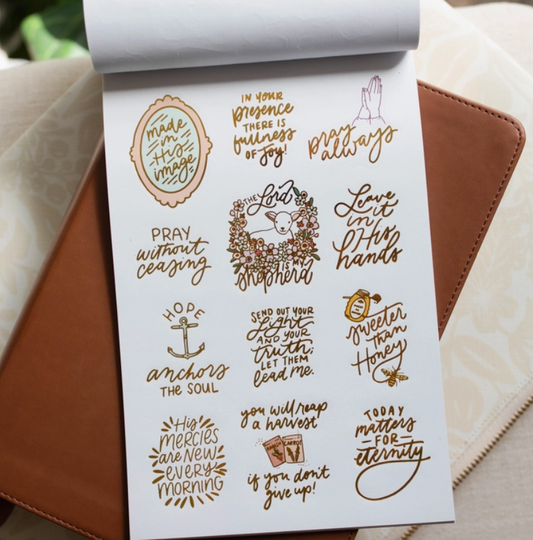 made
in
His
image
IN YOUR
presence
THERE IS
fullness
OF Joy!
pray
always
PRAY
without
ceasing
THE Lord
IS MY
shepherd
Leave
it in
His
hands
HOPE
anchors
THE SOUL
SEND OUT YOUR
Light
AND YOUR
truth;
LET THEM
lead me.
sweeter
than
Honey
His
MERCIES
are NEW
EVERY
MORNING
you will reap
a harvest
if you don't
give up!
TODAY
matters
FOR
eternity